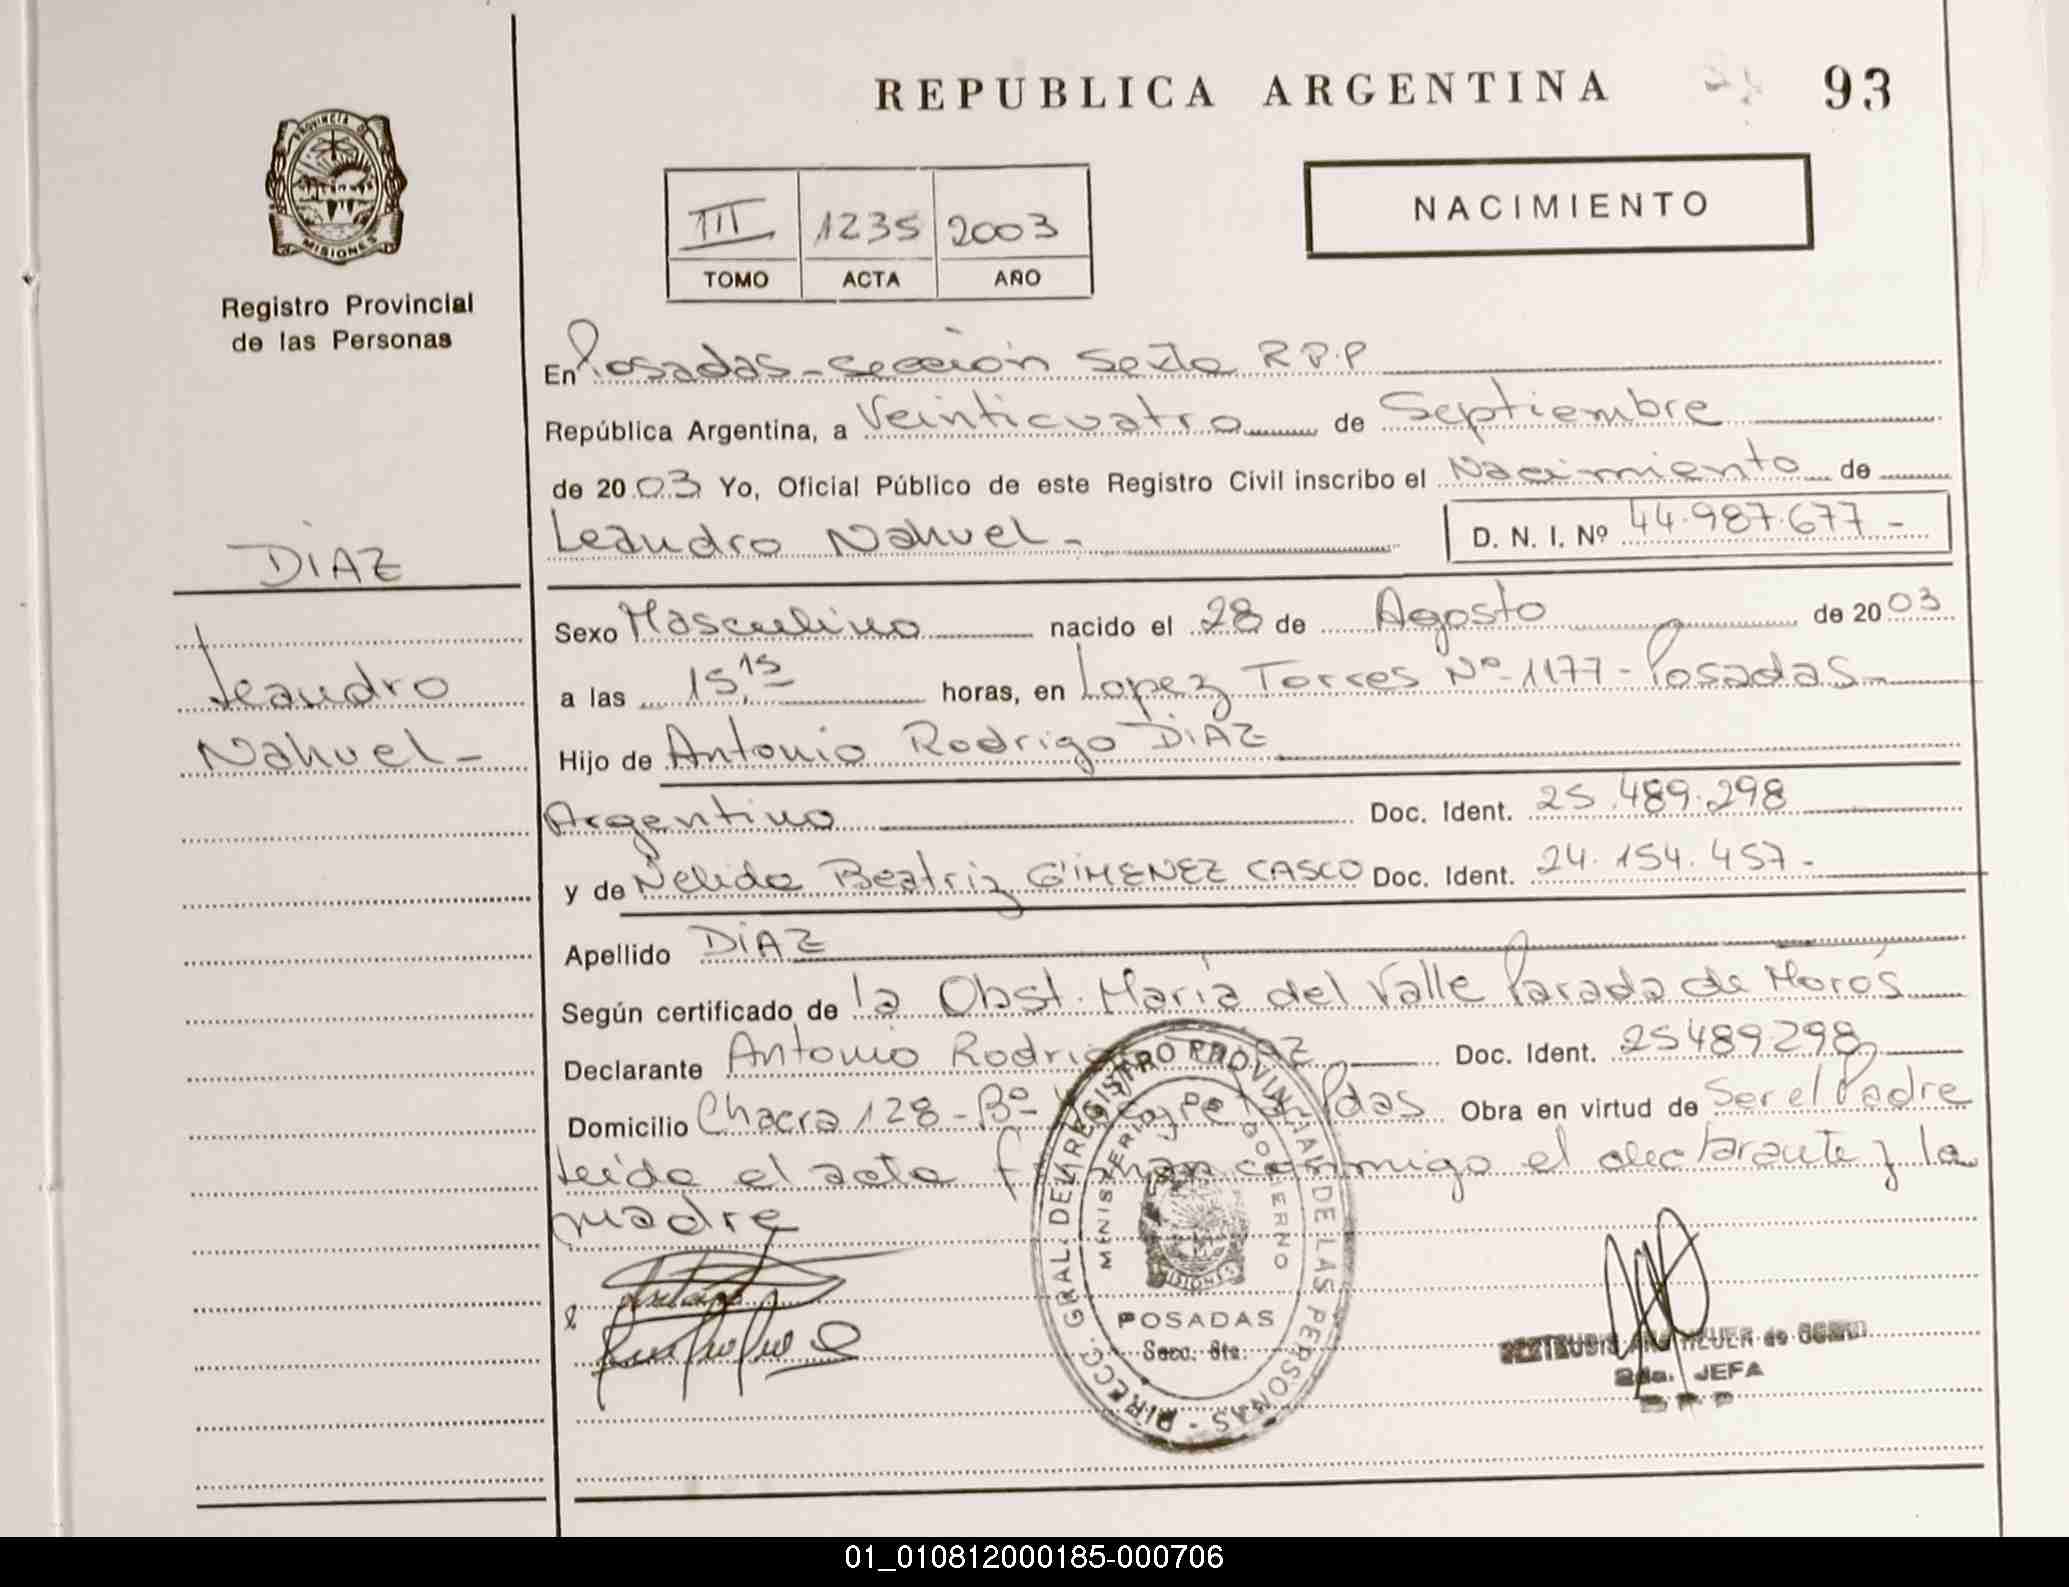 REPUBLICA ARGENTINA
93
PROVINCIA DE
MISIONES
Registro Provincial
de las Personas
III 1235 2003
TOMO ACTA AÑO
NACIMIENTO
En Posadas - sección Sexta R.P.P
República Argentina, a Veinticuatro de Septiembre
de 2003 Yo, Oficial Público de este Registro Civil inscribo el Nacimiento de
Leandro Nahuel - D. N. I. Nº 44.987.677 -
DIAZ
Leandro
Nahuel -
Sexo Masculino nacido el 28 de Agosto de 2003
a las 15,15 horas, en Lopez Torres Nº 1177 - Posadas
Hijo de Antonio Rodrigo DIAZ
Argentino Doc. Ident. 25.489.298
y de Nelida Beatriz GIMENEZ CASCO Doc. Ident. 24.154.457 -
Apellido DIAZ
Según certificado de la Obst. María del Valle Parada de Morós
Declarante Antonio Rodrigo DIAZ Doc. Ident. 25489298
Domicilio Chacra 128 - Bº Pdas Obra en virtud de Ser el Padre
Leída el acta firman conmigo el declarante y la
madre
DIRECC. GRAL. DEL REGISTRO PROVINCIAL DE LAS PERSONAS -
MINISTERIO DE GOBIERNO
MISIONES
POSADAS
Secc. 6ta.
2da. JEFA
R P P
01_010812000185-000706